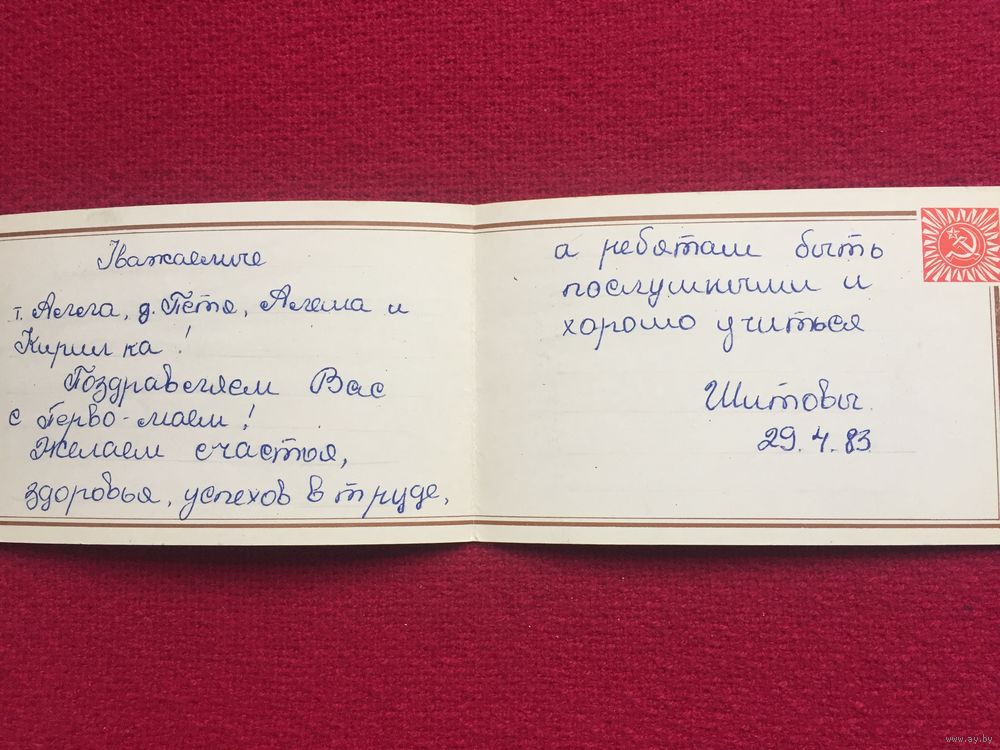 Уважаемые
т. Алла, д. Петя, Алёша и
Кирилка!
Поздравляем Вас
с Перво-маем!
Желаем счастья,
здоровья, успехов в труде,
а ребятам быть
послушными и
хорошо учиться
Шитовы.
29.4.83
www.ay.by